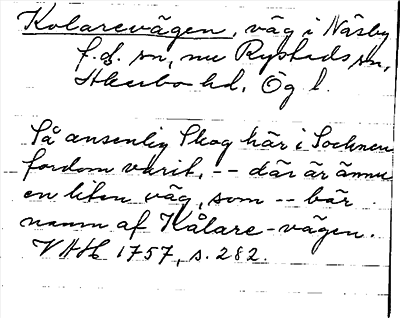 Kolarevägen, väg i Näsby
f.d. sn, nu Rystads sn,
Åkerbo hd, Ög l.
Så ansenlig Skog här i Socknen
fordom varit, -- där är ännu
en liten väg, som -- bär
namn af Kålare-vägen.
VHH 1757, s. 282.